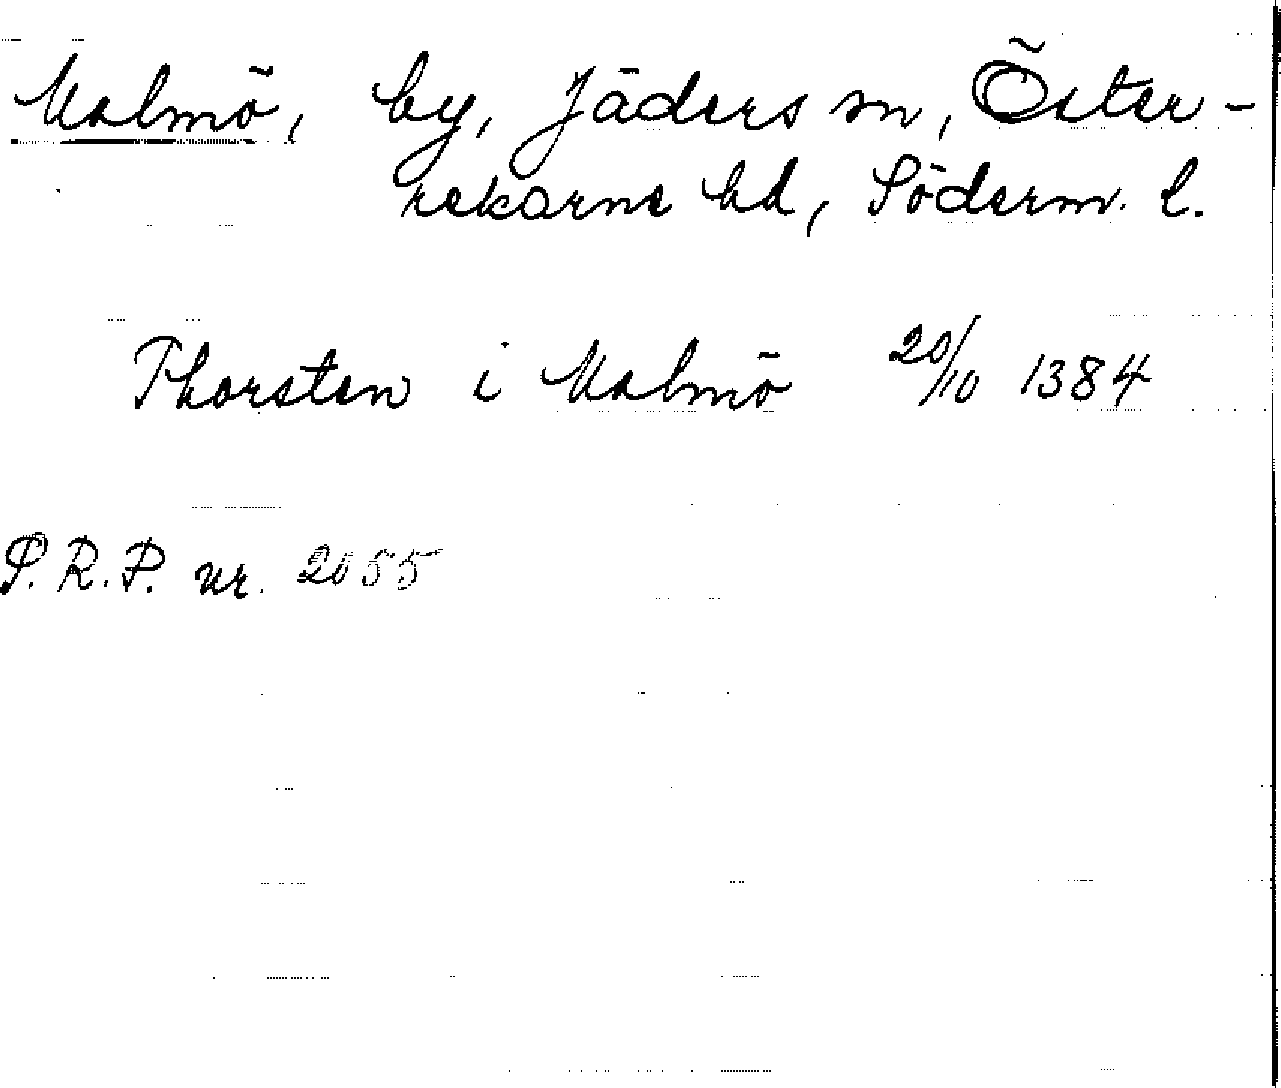 Malmö, by, Jäders sn, Öster-
rekarne hd, Söderm. l.
Thorsten i Malmö 20/10 1384
S.R.P. nr. 2055